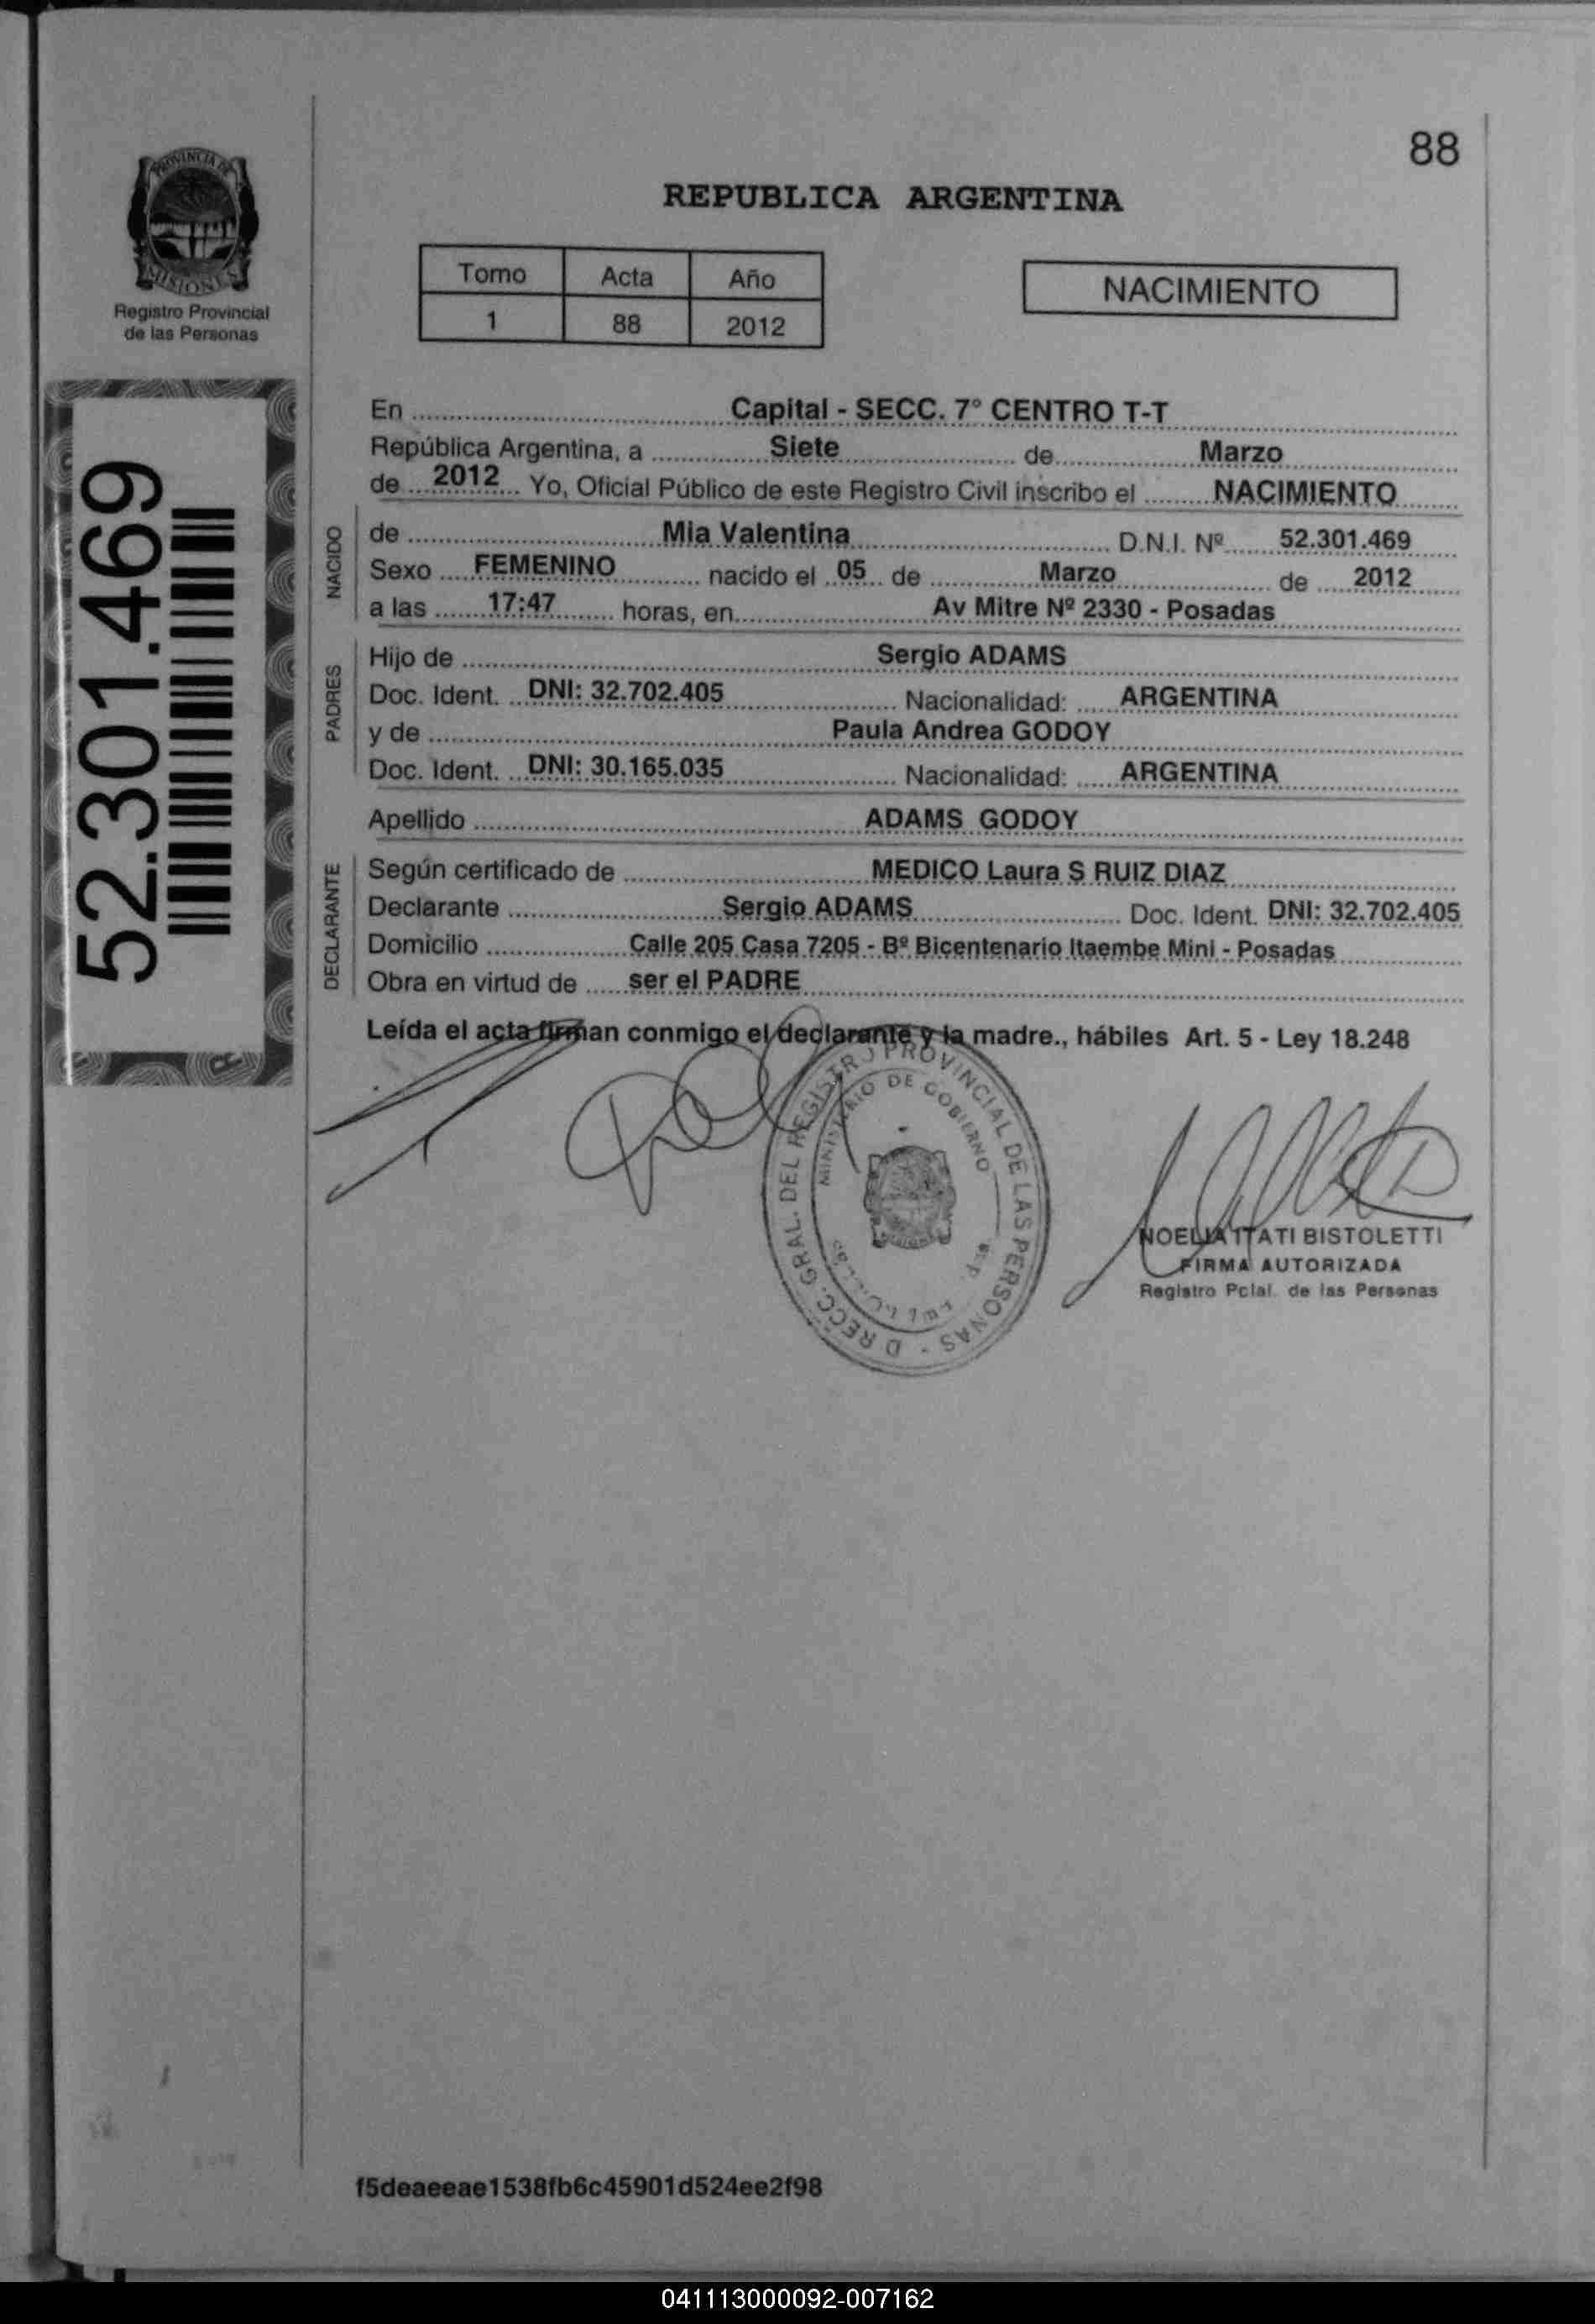 88
PROVINCIA DE
MISIONES
Registro Provincial
de las Personas
REPUBLICA ARGENTINA
Tomo Acta Año
1 88 2012
NACIMIENTO
52.301.469
En Capital - SECC. 7° CENTRO T-T
República Argentina, a Siete de Marzo
de 2012 Yo, Oficial Público de este Registro Civil inscribo el NACIMIENTO
NACIDO
de Mia Valentina D.N.I. Nº 52.301.469
Sexo FEMENINO nacido el 05 de Marzo de 2012
a las 17:47 horas, en Av Mitre Nº 2330 - Posadas
PADRES
Hijo de Sergio ADAMS
Doc. Ident. DNI: 32.702.405 Nacionalidad: ARGENTINA
y de Paula Andrea GODOY
Doc. Ident. DNI: 30.165.035 Nacionalidad: ARGENTINA
Apellido ADAMS GODOY
DECLARANTE
Según certificado de MEDICO Laura S RUIZ DIAZ
Declarante Sergio ADAMS Doc. Ident. DNI: 32.702.405
Domicilio Calle 205 Casa 7205 - Bº Bicentenario Itaembe Mini - Posadas
Obra en virtud de ser el PADRE
Leída el acta firman conmigo el declarante y la madre., hábiles Art. 5 - Ley 18.248
D RECC. GRAL. DEL REGISTR PROVINCIAL DE LAS PERSONAS -
MINISTERIO DE GOBIERNO
NOELIA ITATI BISTOLETTI
FIRMA AUTORIZADA
Registro Pcial. de las Personas
f5deaeeae1538fb6c45901d524ee2f98
041113000092-007162